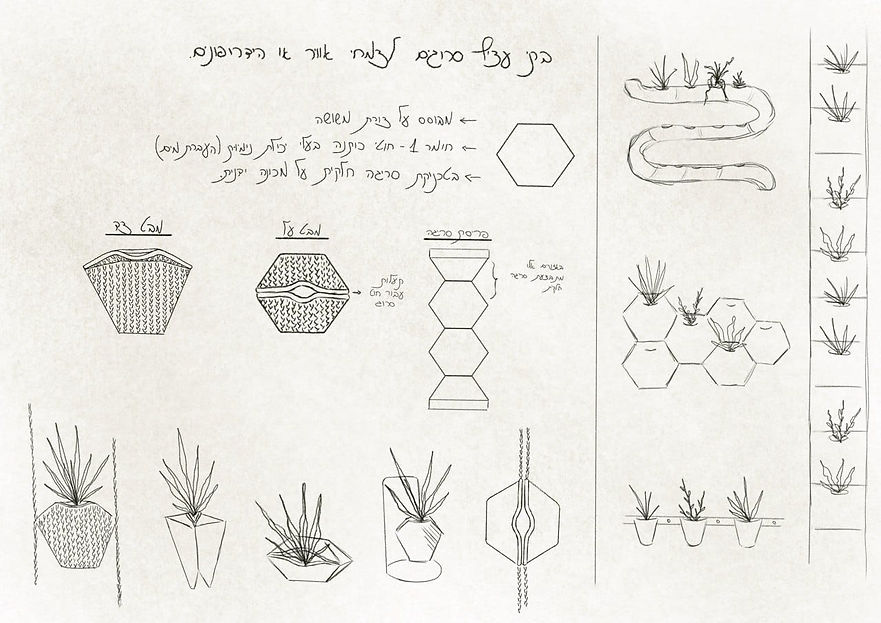 בתי עציץ סרוגים לצמחי אוויר או הידרופונים.
← מבוסס על צורת משושה
← חומר 1 - חוטי כותנה בעלי יכולת נימיות (העברת מים)
← בטכניקת סריגה חלקית על מכונה ידנית.
מבט צד
מבט על
פריסת סריגה
תעלות
עבור חוט
סרוג
באזורים אלו
מתבצעת סריגה
חלקית